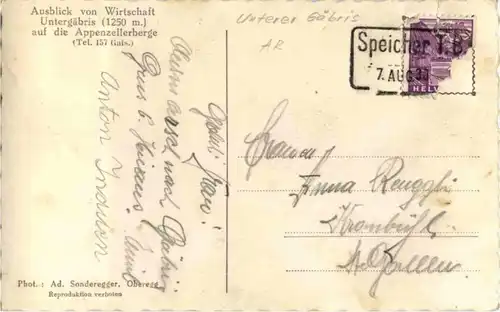 Ausblick von Wirtschaft
Untergäbris (1250 m.)
auf die Appenzellerberge
(Tel. 157 Gais.)
Unterer Gäbris
AR
Speicher T.B.
7. AUG.
HELV
Ausmarsch nach Gäbris
Anton
Frauen
Anna Renggli
Kronbühl
St Gallen
Phot.: Ad. Sonderegger, Oberegg
Reproduktion verboten